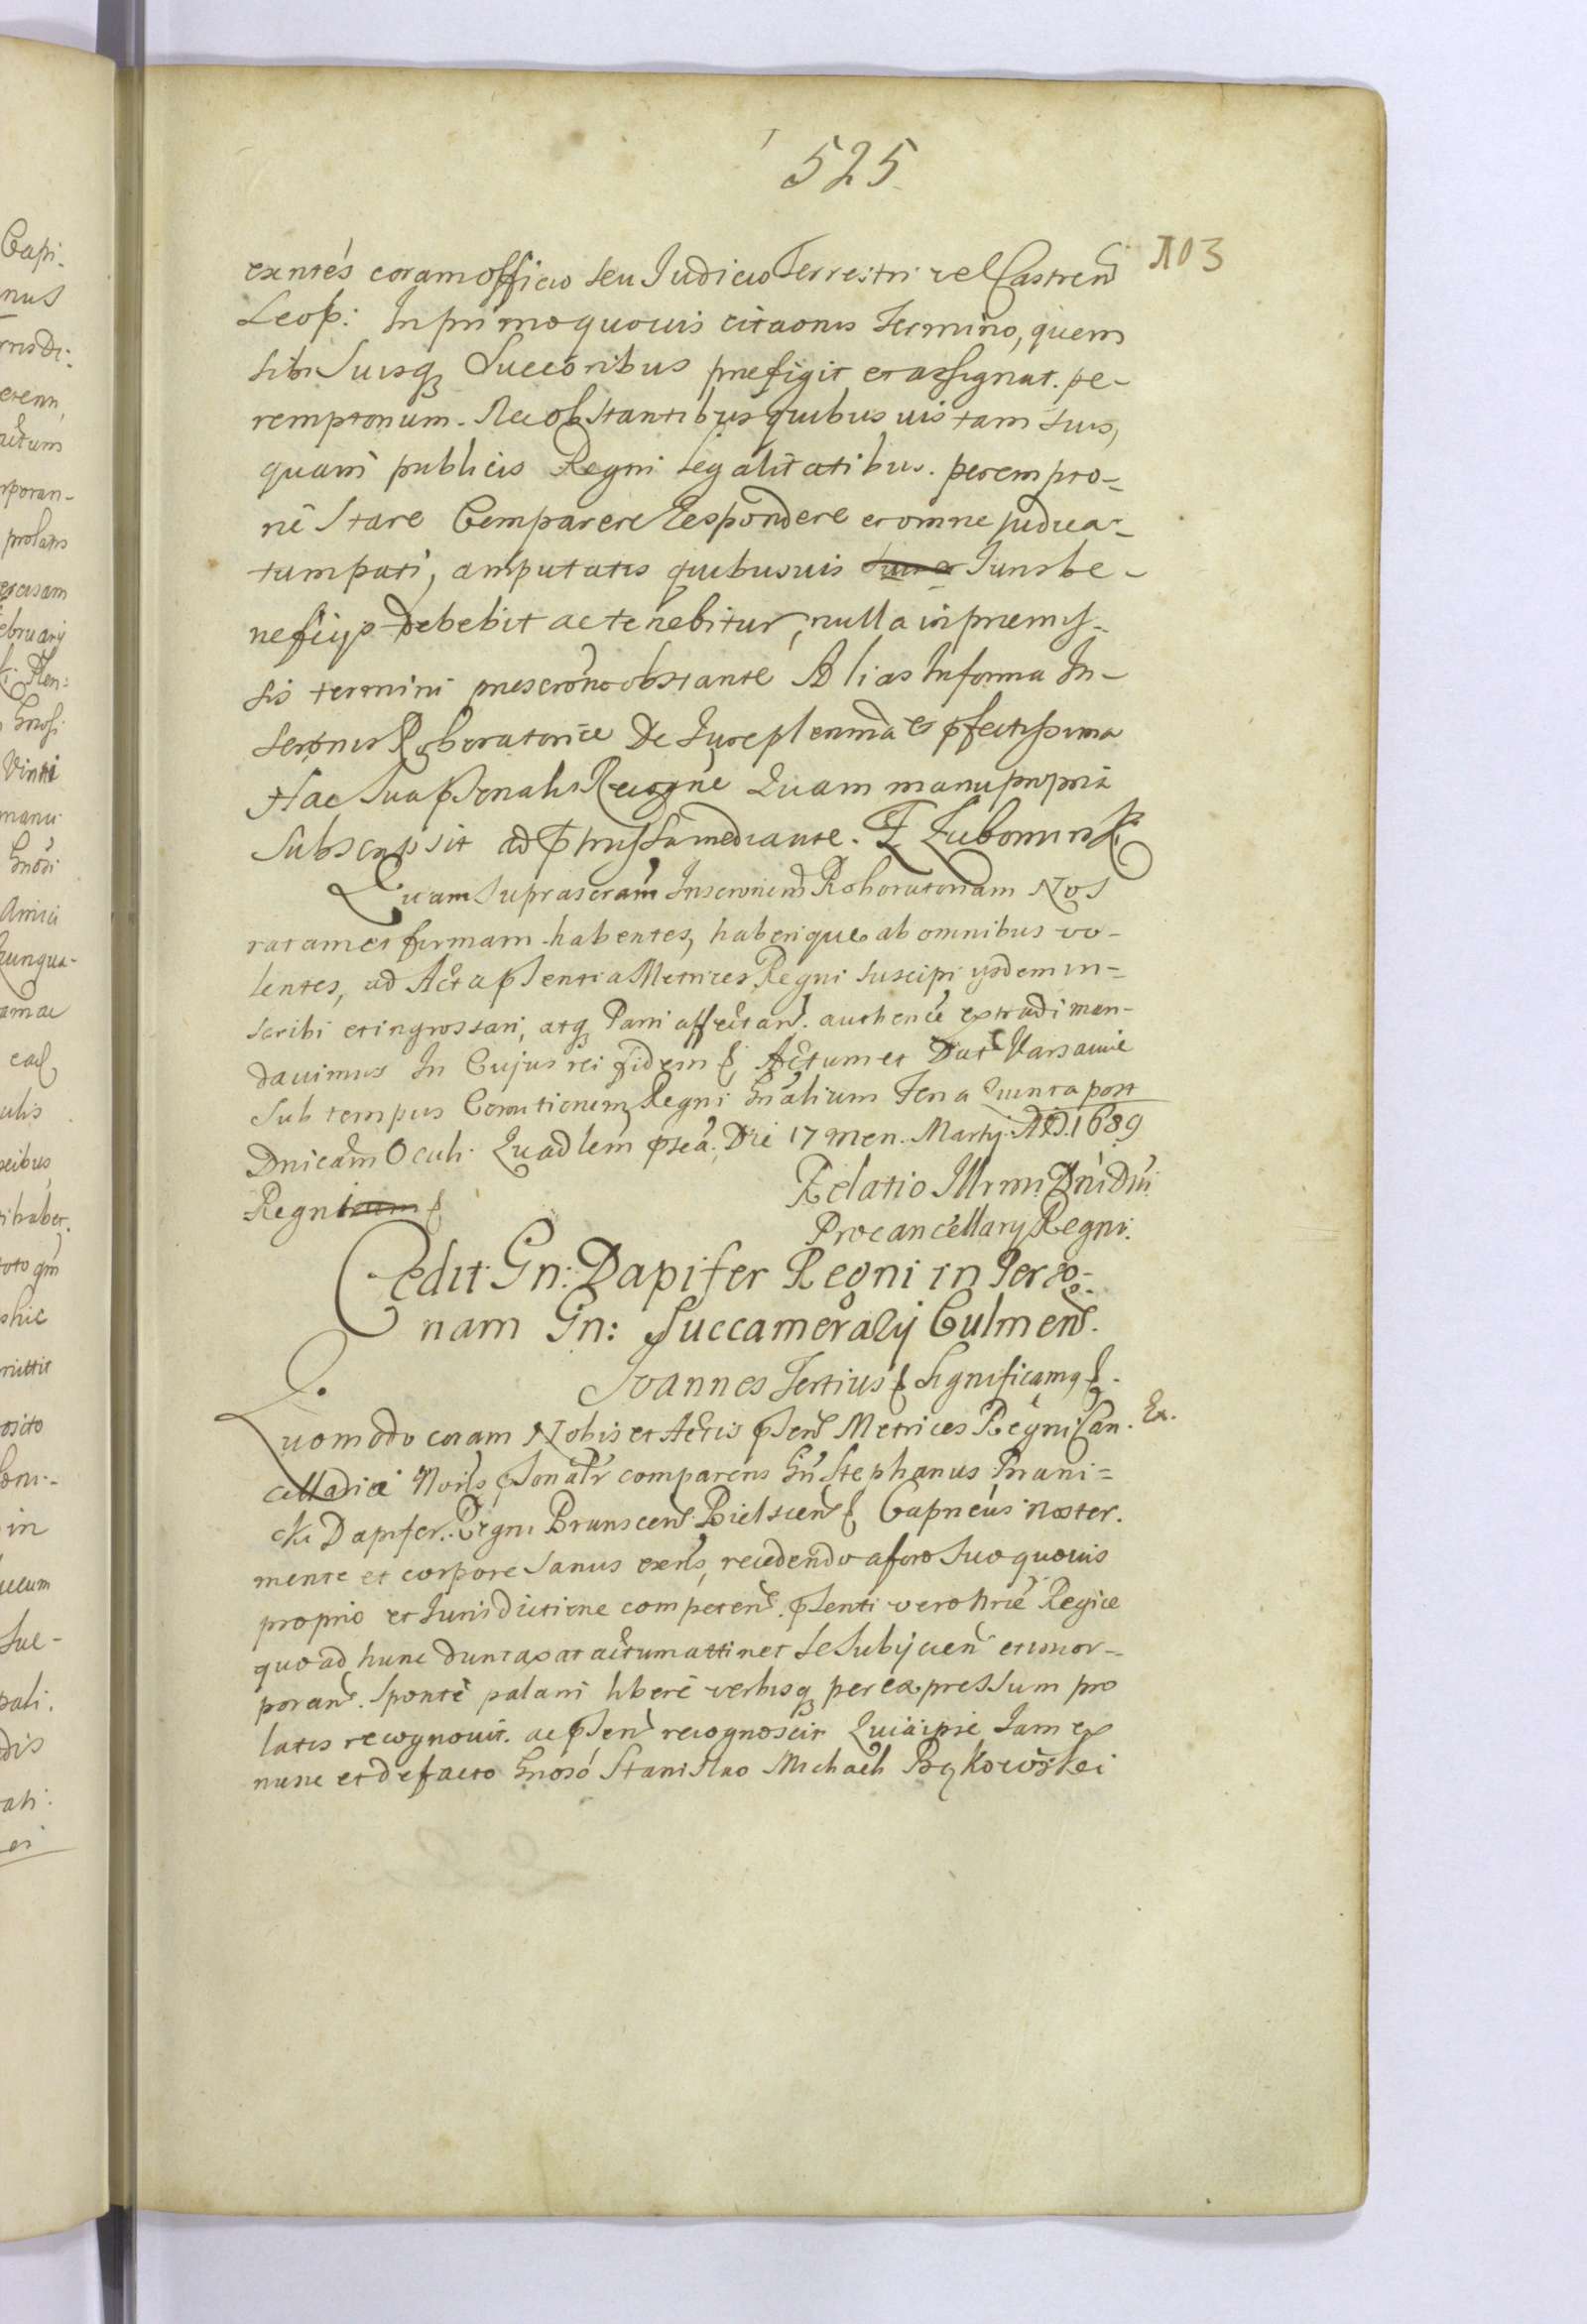 525
103
exntés coram officio seu Judicio Terrestri vel Castren
Leop: In primo quouis citaonis Termino, quem
sibi Suisq Succoribus prefigit et assignat. pe-
remptorium. Nec obstantibus quibus uis tam suis,
quam publicis Regni legalitatibus. perempto-
riè Stare Comparere Respondere et omne judica-
tum pati, amputatis quibusuis Juris be-
neficijs debebit ac tenebitur, nulla in premis-
sis termini prescrone obstante Alias In forma In-
scrōnis Roboratoriæ De Jure plenma et pfectissima
Hac Sua psonali Recogne Quam manu propria
Subscripsit ad pmissa mediante. Z Lubomirsk
Quam Suprascram Inscronem Roboratoriam Nos
ratam et firmam habentes, haberique ab omnibus vo-
lentes, ad Acta psentia Metrices Regni suscipi ijsdem in-
scribi et ingrossari, atq Parti affectan. authence extradi man-
dauimus In Cujus rei fidem Actum et Dat Varsauie
Sub tempus Comitiorum Regni Gnalium Feria Quinta post
Dnicam Oculi Quadlem pxa. Die 17 men. Martij. AD. 1689
Regni
Relatio Illrmi Dni Dni
Procancellary Regni.
Cedit Gn: Dapifer Regni in Perso-
nam Gn: Succameralij Culmen.
Joannes Tertius Significamq
Quomodo coram Nobis et Actis psen Metrices Regni Can. Ex.
cellariæ Nois psonalr comparens Gn Stephanus Brani-
cki Dapifer. Regni Branscen Bielscen Capneus noster.
mente et corpore sanus exens, recedendo a foro suo quouis
proprio et Jurisdictione competen. psenti vero nrie Regiæ
quo ad hunc duntaxat actum attinet se subijcien et incor-
poran. Spontè palam liberè verbisq per expressum pro
latis recognouit. ac psen recognoscit Quia ipse Jam ex
nunc et de facto Gnoso Stanislao Michaeli Bykowskei